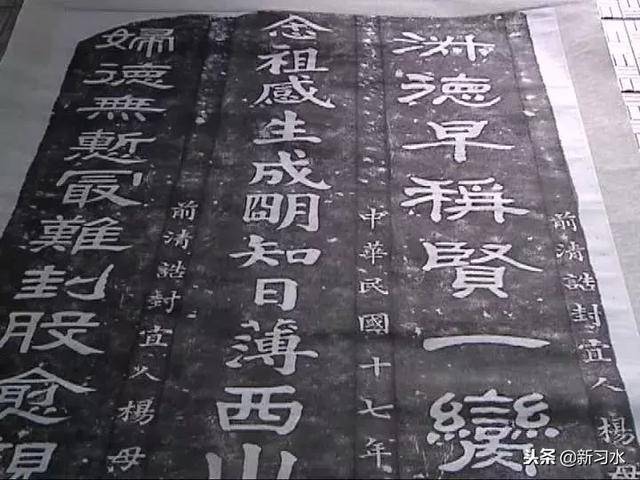 前清誥封宜人楊母
淑德早稱賢一
中華民國十七年
念祖感生成朙知日薄西山
前清誥封宜人楊母
婦德無慙冣難刲股愈親
头条 @新习水